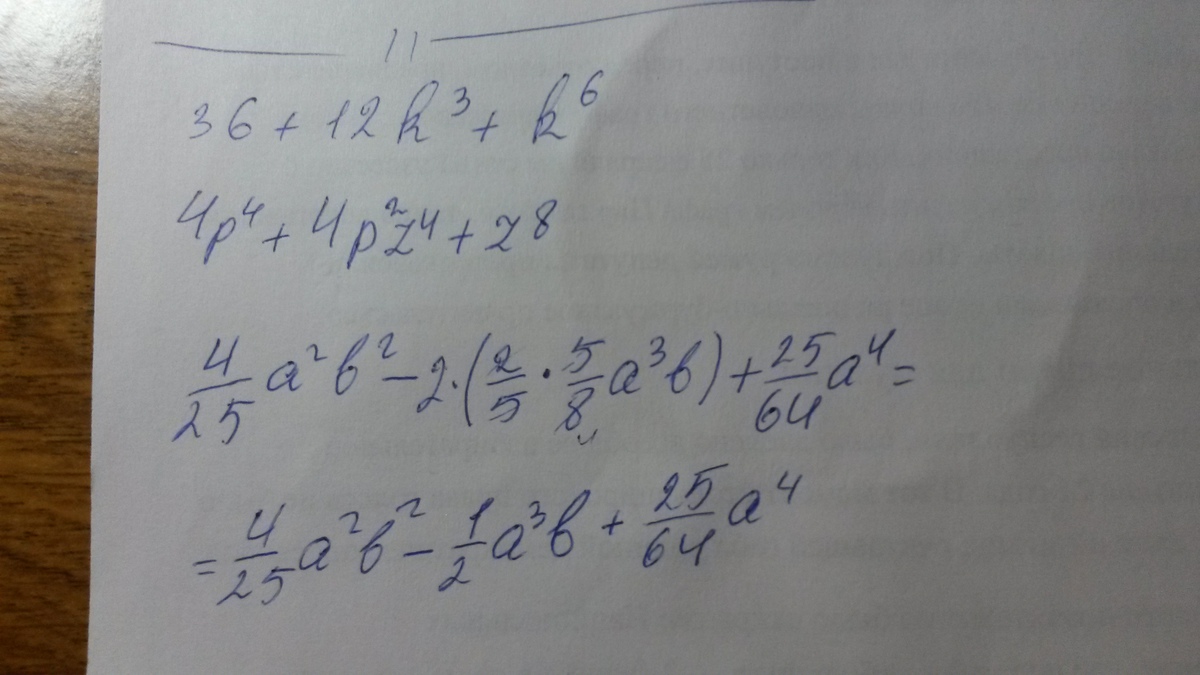 11
36 + 12k³ + k⁶
4p⁴ + 4p²z⁴ + z8
4/25 a²b² - 2·(2/5 · 5/8 a³b) + 25/64 a⁴ =
= 4/25 a²b² - 1/2 a³b + 25/64 a⁴